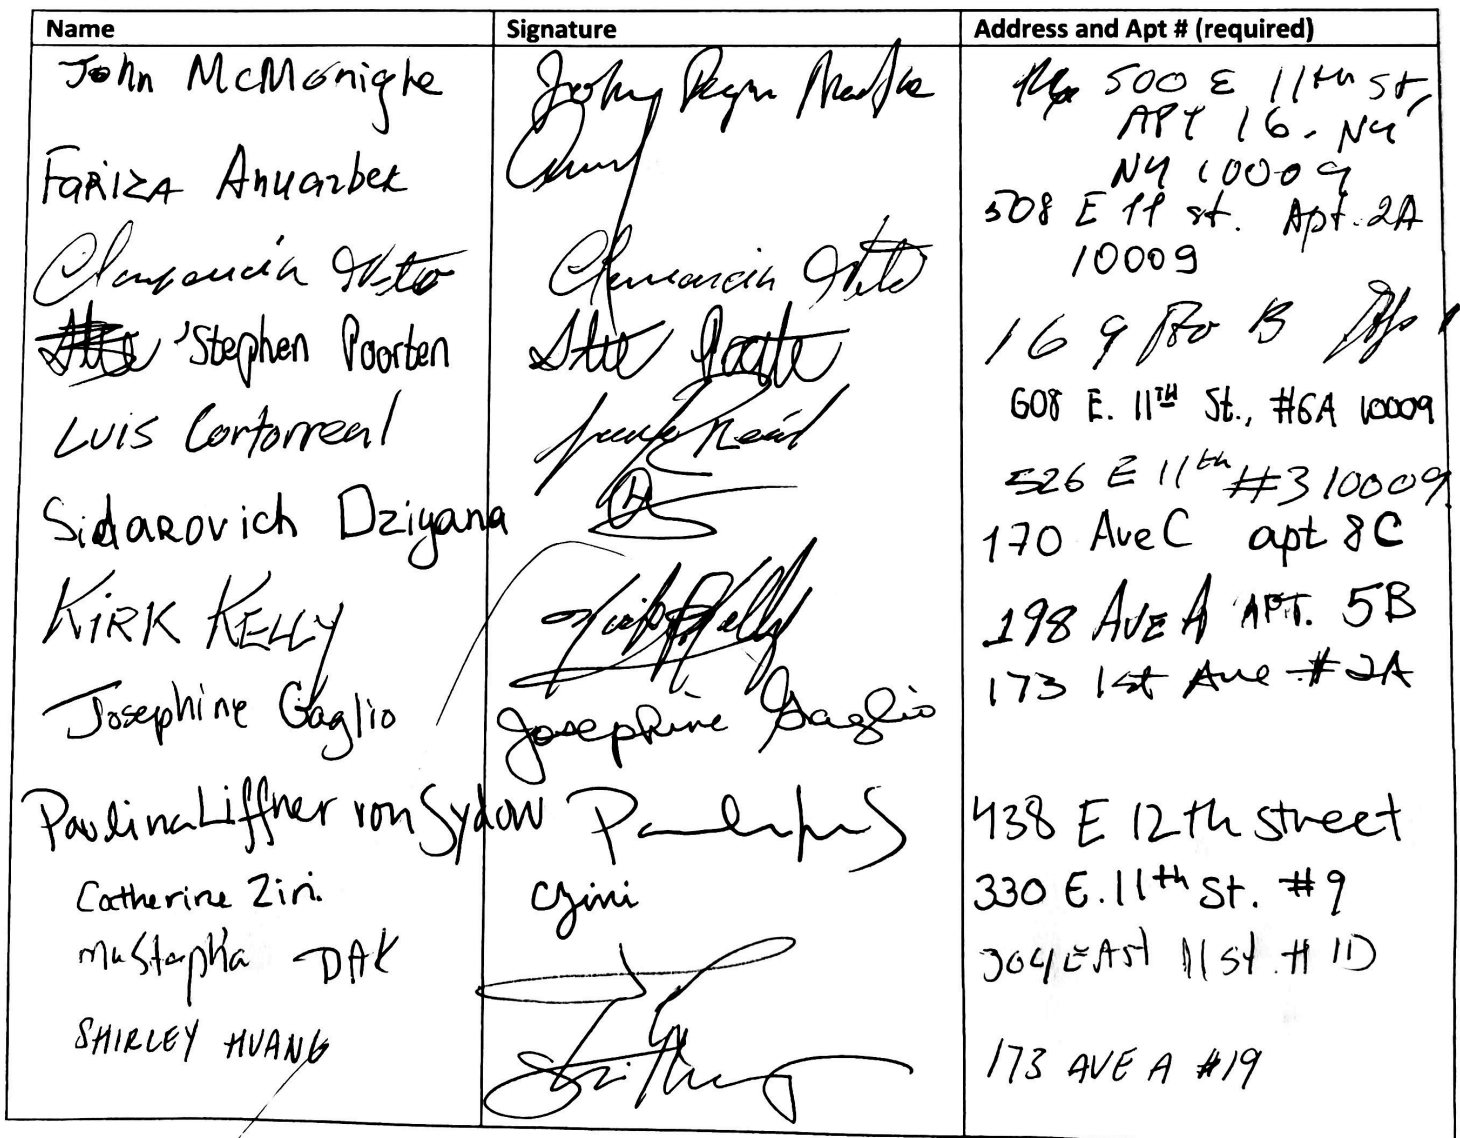 Name Signature Address and Apt # (required)
John McMonigle
500 E 11th St,
APT 16. NY
NY 10009
FARIZA Anuarbek
508 E 11 st. Apt. 2A
10009
169 B
Stephen Poorten
608 E. 11TH St., #6A 10009
Luis Cortorreal
526 E 11th #3 10009
Sidarovich Dziyana
170 Ave C apt 8C
KIRK KELLY Kirk Kelly 198 AVE A APT. 5B
Josephine Gaglio Josephine Gaglio 173 1st Ave #2A
Paulina Liffner von Sydow 438 E 12th street
Catherine Zini CZini 330 E. 11th St. #9
Mustapha DAK 304 EAST 11 St. # 11D
SHIRLEY HUANG 173 AVE A #19